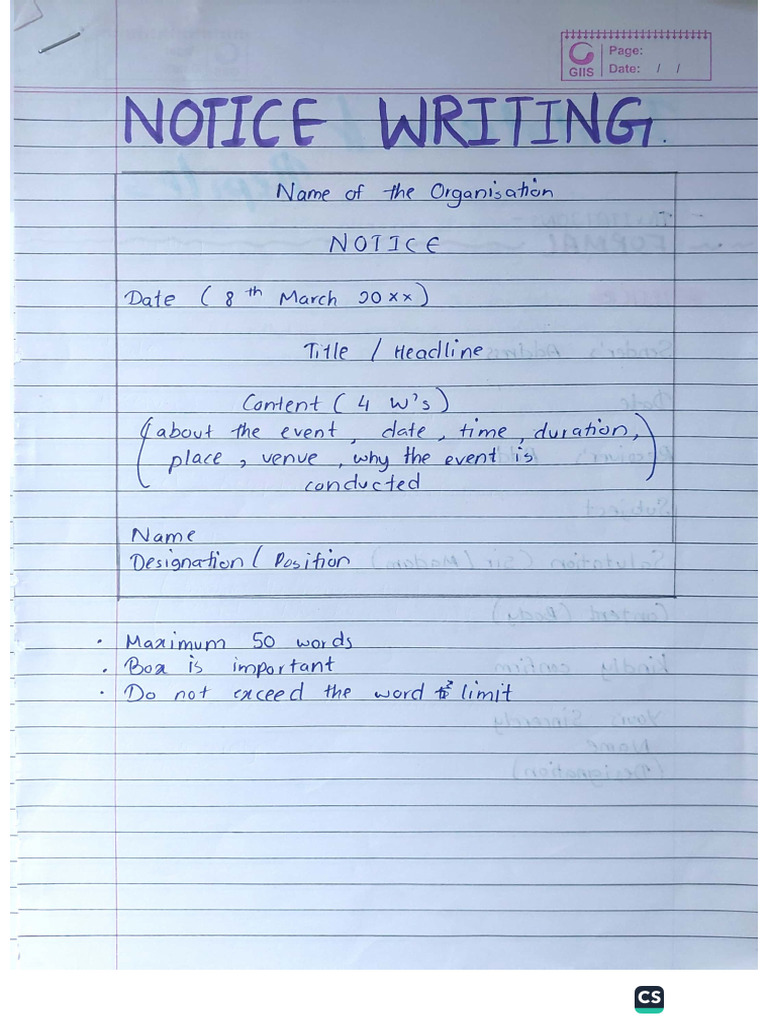 GIIS
Page:
Date: / /
NOTICE WRITING.
Name of the Organisation
NOTICE
Date ( 8th March 20xx)
Title / Headline
Content ( 4 W's)
(about the event, date, time, duration,
place, venue, why the event is
conducted)
Name
Designation / Position
• Maximum 50 words
• Box is important
• Do not exceed the word limit
CS